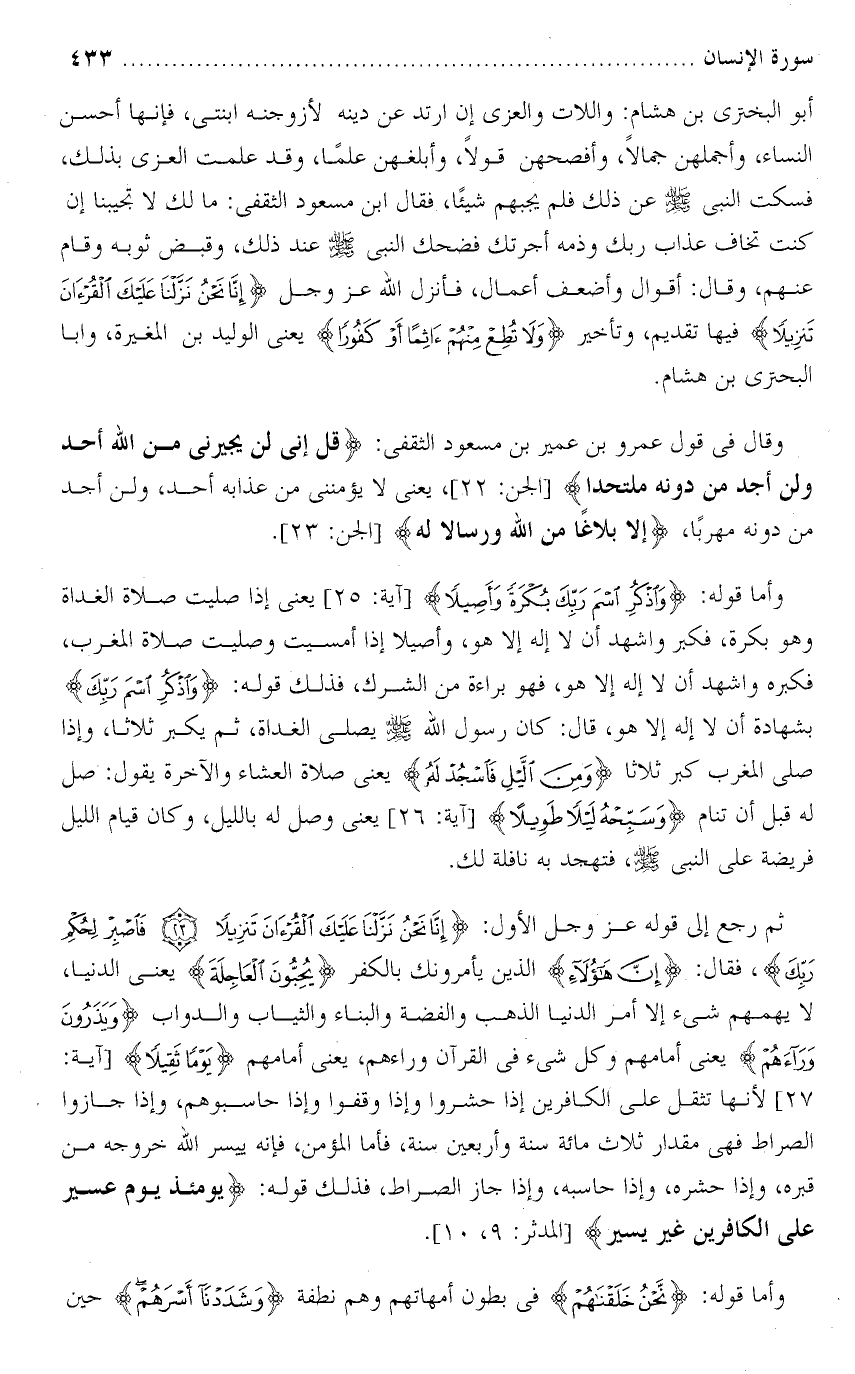 سورة الإنسان ........................................................................ ٤٣٣
أبو البخترى بن هشام: واللات والعزى إن ارتد عن دينه لأزوجنه ابنتى، فإنها أحسن
النساء، وأجملهن جمالاً، وأفصحهن قولاً، وأبلغهن علمًا، وقد علمت العزى بذلك،
فسكت النبى ﷺ عن ذلك فلم يجبهم شيئًا، فقال ابن مسعود الثقفى: ما لك لا تجيبنا إن
كنت تخاف عذاب ربك وذمه أجرتك فضحك النبى ﷺ عند ذلك، وقبض ثوبه وقام
عنهم، وقال: أقوال وأضعف أعمال، فأنزل الله عز وجل ﴿إِنَّا نَحْنُ نَزَّلْنَا عَلَيْكَ ٱلْقُرْءَانَ
تَنزِيلًا﴾ فيها تقديم، وتأخير ﴿وَلَا تُطِعْ مِنْهُمْ ءَاثِمًا أَوْ كَفُورًا﴾ يعنى الوليد بن المغيرة، وابا
البحترى بن هشام.
وقال فى قول عمرو بن عمير بن مسعود الثقفى: ﴿قل إنى لن يجيرنى من الله أحد
ولن أجد من دونه ملتحدا﴾ [الجن: ٢٢]، يعنى لا يؤمننى من عذابه أحد، ولن أجد
من دونه مهربًا، ﴿إلا بلاغًا من الله ورسالا له﴾ [الجن: ٢٣].
وأما قوله: ﴿وَٱذْكُرِ ٱسْمَ رَبِّكَ بُكْرَةً وَأَصِيلًا﴾ [آية: ٢٥] يعنى إذا صليت صلاة الغداة
وهو بكرة، فكبر واشهد أن لا إله إلا هو، وأصيلا إذا أمسيت وصليت صلاة المغرب،
فكبره واشهد أن لا إله إلا هو، فهو براءة من الشرك، فذلك قوله: ﴿وَٱذْكُرِ ٱسْمَ رَبِّكَ﴾
بشهادة أن لا إله إلا هو، قال: كان رسول الله ﷺ يصلى الغداة، ثم يكبر ثلاثا، وإذا
صلى المغرب كبر ثلاثا ﴿وَمِنَ ٱلَّيْلِ فَٱسْجُدْ لَهُ﴾ يعنى صلاة العشاء والآخرة يقول: صل
له قبل أن تنام ﴿وَسَبِّحْهُ لَيْلًا طَوِيلًا﴾ [آية: ٢٦] يعنى وصل له بالليل، وكان قيام الليل
فريضة على النبى ﷺ، فتهجد به نافلة لك.
ثم رجع إلى قوله عز وجل الأول: ﴿إِنَّا نَحْنُ نَزَّلْنَا عَلَيْكَ ٱلْقُرْءَانَ تَنزِيلًا ٢٣ فَٱصْبِرْ لِحُكْمِ
رَبِّكَ﴾، فقال: ﴿إِنَّ هَٰٓؤُلَآءِ﴾ الذين يأمرونك بالكفر ﴿يُحِبُّونَ ٱلْعَاجِلَةَ﴾ يعنى الدنيا،
لا يهمهم شىء إلا أمر الدنيا الذهب والفضة والبناء والثياب والدواب ﴿وَيَذَرُونَ
وَرَآءَهُمْ﴾ يعنى أمامهم وكل شىء فى القرآن وراءهم، يعنى أمامهم ﴿يَوْمًا ثَقِيلًا﴾ [آية:
٢٧] لأنها تثقل على الكافرين إذا حشروا وإذا وقفوا وإذا حاسبوهم، وإذا جازوا
الصراط فهى مقدار ثلاث مائة سنة وأربعين سنة، فأما المؤمن، فإنه ييسر الله خروجه من
قبره، وإذا حشره، وإذا حاسبه، وإذا جاز الصراط، فذلك قوله: ﴿يومئذ يوم عسير
على الكافرين غير يسير﴾ [المدثر: ٩، ١٠].
وأما قوله: ﴿نَّحْنُ خَلَقْنَٰهُمْ﴾ فى بطون أمهاتهم وهم نطفة ﴿وَشَدَدْنَآ أَسْرَهُمْ﴾ حين